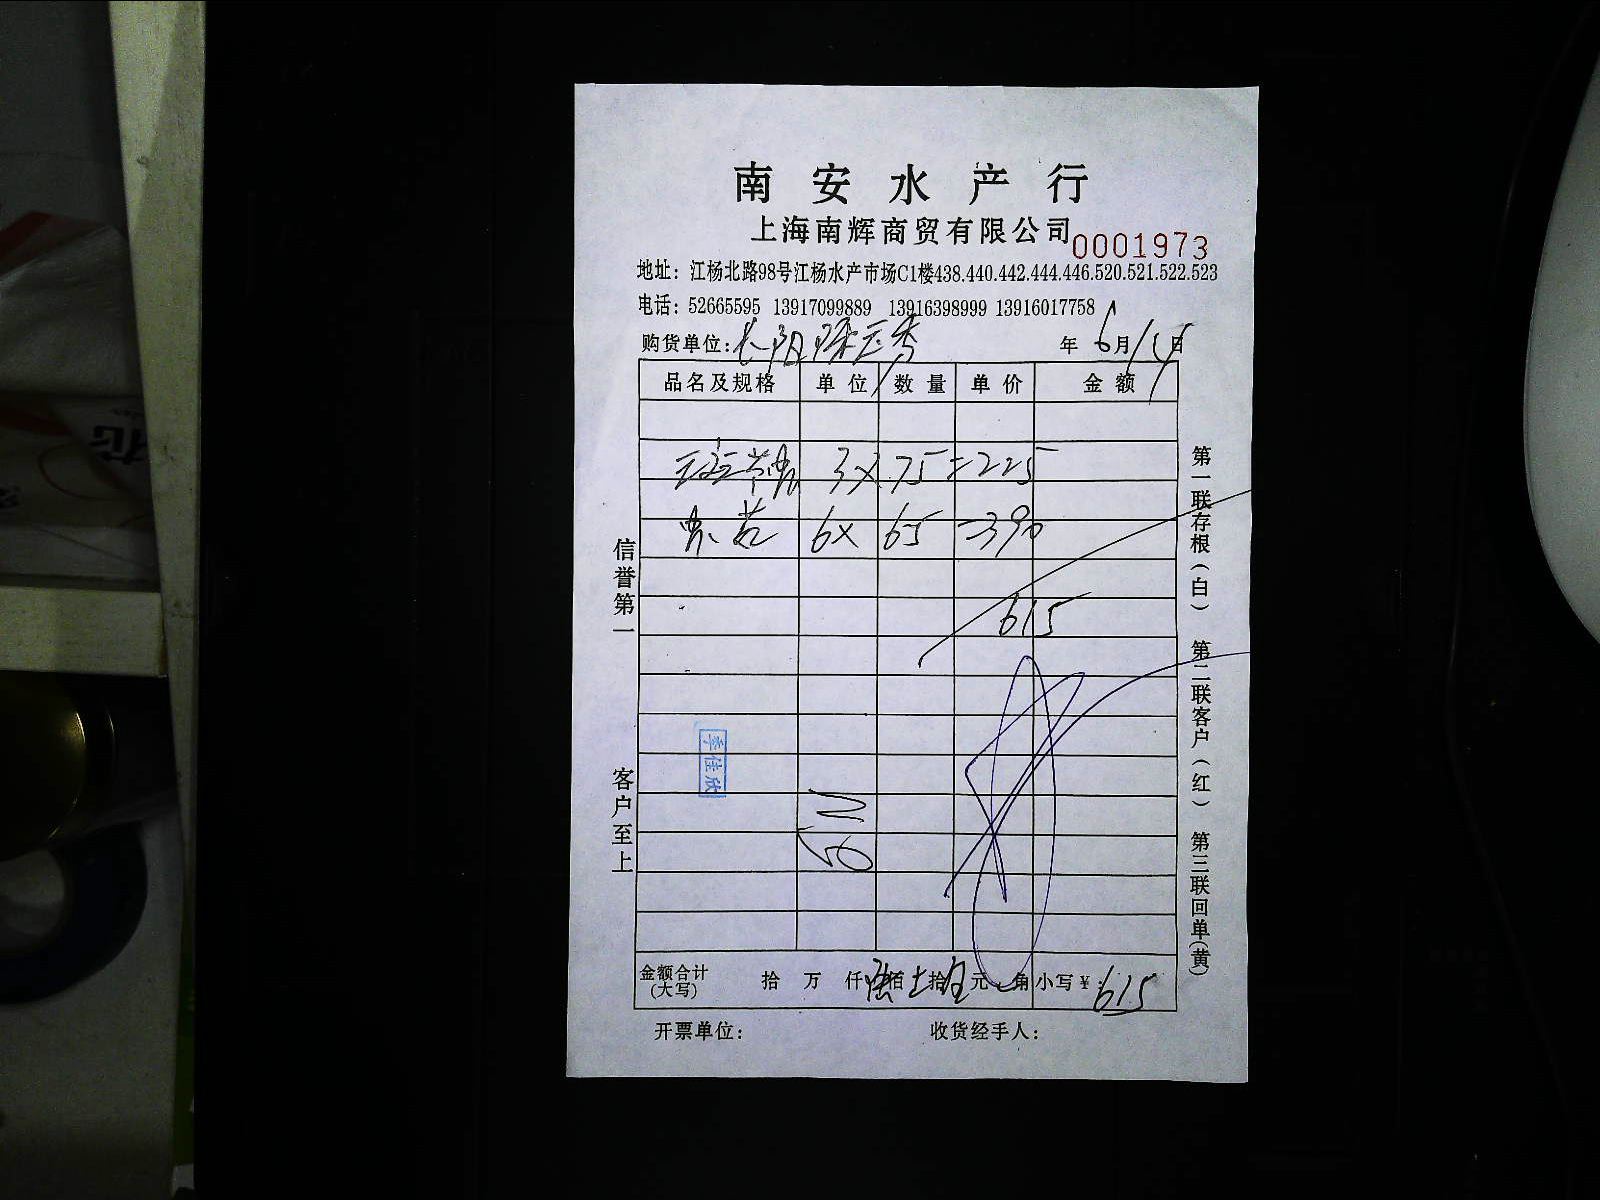 南安水产行
上海南辉商贸有限公司
0001973
地址：江杨北路98号江杨水产市场C1楼438.440.442.444.446.520.521.522.523
电话：52665595 13917099889 13916398999 13916017758
购货单位： 年 6月15日
品名及规格 单位 数量 单价 金额
3× 75=225
6× 65=390
615
信誉第一
客户至上
第一联存根（白） 第二联客户（红） 第三联回单（黄）
李佳欣
金额合计（大写） 拾 万 仟 陆佰 拾 元 角 小写¥：615
开票单位： 收货经手人：